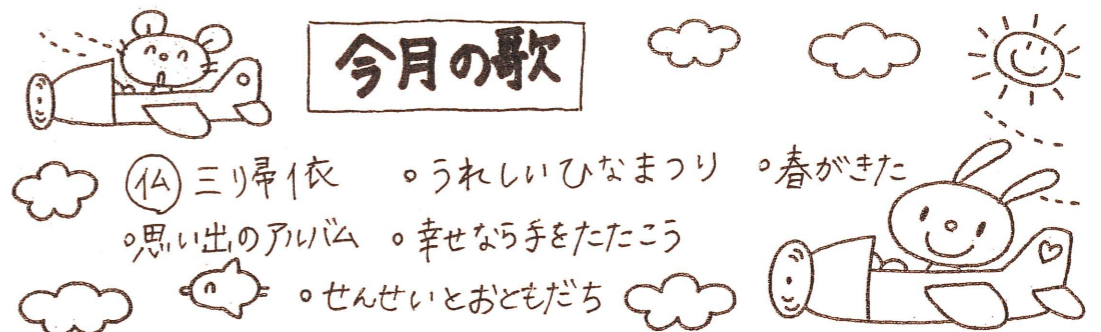 今月の歌
仏 三帰依 ○うれしいひなまつり ○春がきた
○思い出のアルバム ○幸せなら手をたたこう
○せんせいとおともだち